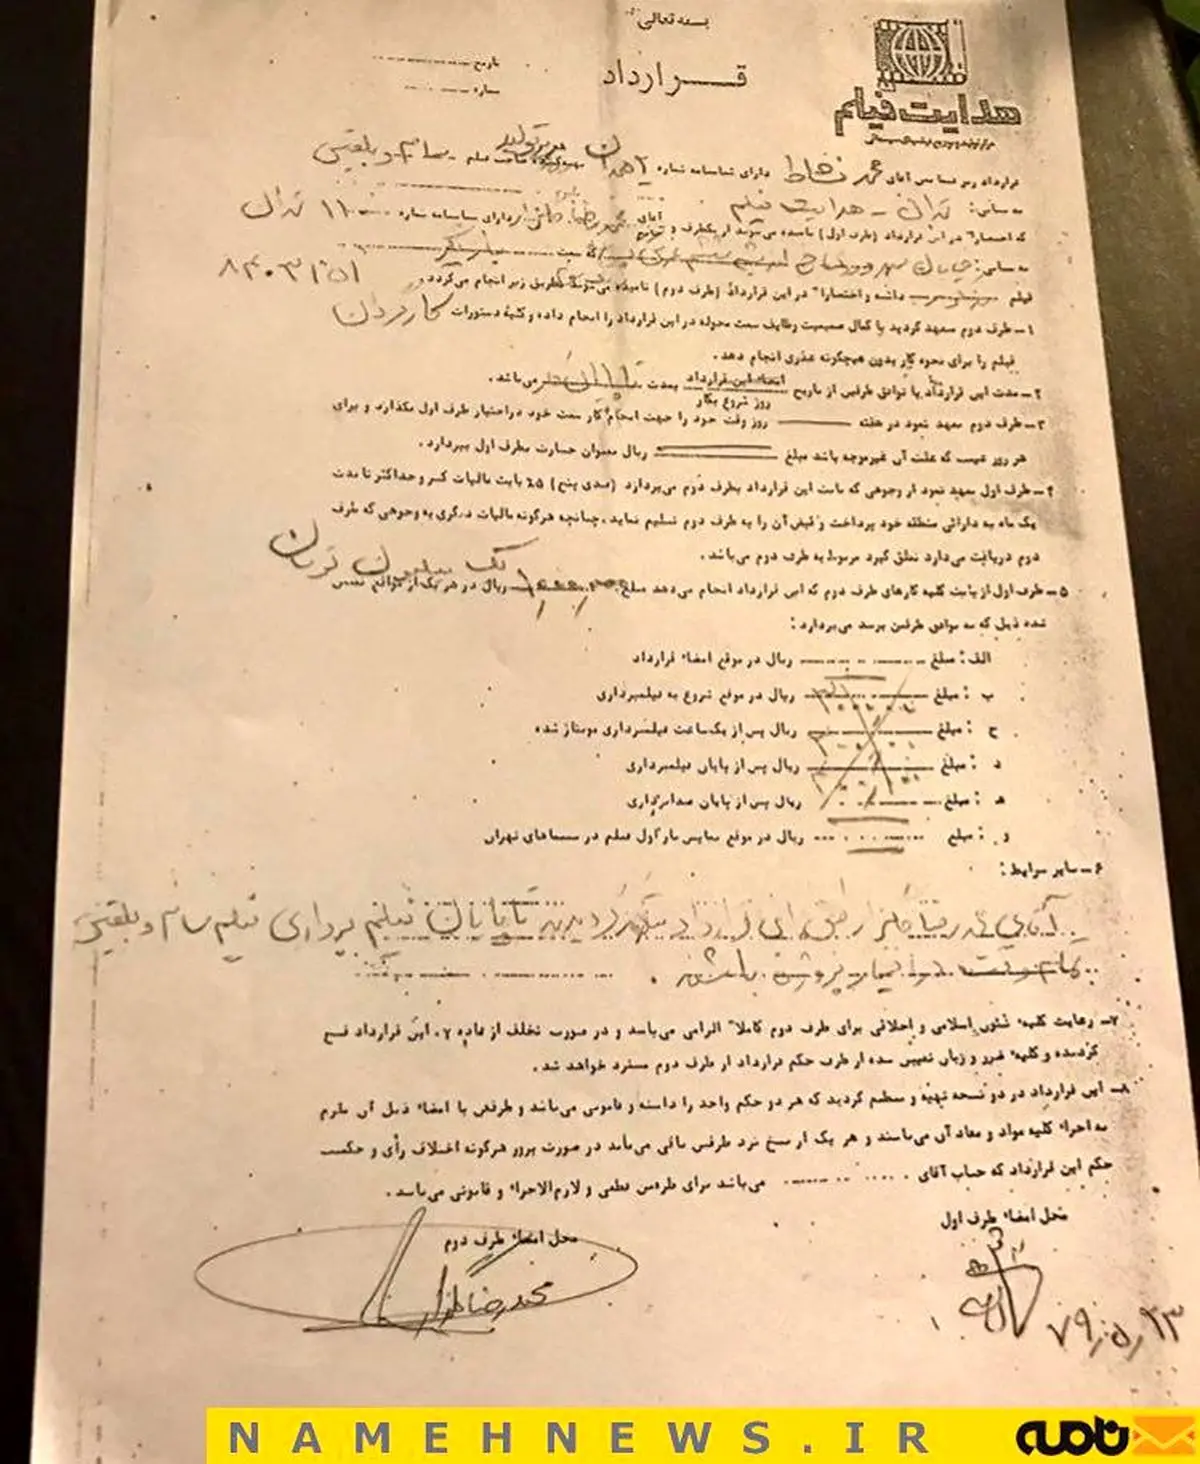 بسمه تعالی
هدایت فیلم
قرارداد
تاریخ
شماره
قرارداد زیر فیمابین آقای محمد نشاط دارای شناسنامه شماره تهیه‌کننده صاحب فیلم سام و بلقیس
به نشانی: تهران - هدایت فیلم
که اختصارا" در این قرارداد (طرف اول) نامیده می‌شود از یکطرف و آقای محمدرضا گلزار دارای شناسنامه شماره ۱۱۰۰۰ تهران
به نشانی: خیابان سهروردی که سمت بازیگر
۸۴۰۳۱۵۱
فیلم داشته و اختصارا" در این قرارداد (طرف دوم) نامیده می‌شود بطریق زیر انجام می‌گردد
۱ـ طرف دوم متعهد گردید با کمال صمیمیت وظایف سمت محوله در این قرارداد را انجام داده و کلیهٔ دستورات کارگردان
فیلم را برای نحوه کار بدون هیچگونه عذری انجام دهد.
۲ـ مدت این قرارداد با توافق طرفین از تاریخ امضاء این قرارداد بمدت پایان کار می‌باشد.
روز شروع بکار
۳ـ طرف دوم متعهد نمود در هفته روز وقت خود را جهت انجام کار سمت خود در اختیار طرف اول بگذارد و برای
هر روز غیبت که علت آن غیرموجه باشد مبلغ ریال بعنوان خسارت بطرف اول بپردازد.
۴ـ طرف اول متعهد نمود از وجوهی که بابت این قرارداد بطرف دوم می‌پردازد (صدی پنج) ۵٪ بابت مالیات کسر و حداکثر تا مدت
یک ماه به دارائی منطقه خود پرداخت و فیش آن را به طرف دوم تسلیم نماید، چنانچه هرگونه مالیات دیگری به وجوهی که طرف
دوم دریافت می‌دارد تعلق گیرد مربوط به طرف دوم می‌باشد.
یک میلیون تومان
۵ـ طرف اول از بابت کلیه کارهای طرف دوم که این قرارداد انجام می‌دهد مبلغ ۱۰٫۰۰۰٫۰۰۰ ریال در هر یک از مواقع تعیین
شده ذیل که به توافق طرفین برسد می‌پردازد:
الف: مبلغ ریال در موقع امضاء قرارداد
ب: مبلغ ریال در موقع شروع به فیلمبرداری
ج: مبلغ ریال پس از یک ساعت فیلمبرداری مونتاژ شده
د: مبلغ ریال پس از پایان فیلمبرداری
هـ: مبلغ ریال پس از پایان صدابرداری
و: مبلغ ریال در موقع نمایش بار اول فیلم در سینماهای تهران
۶ـ سایر شرایط:
آقای محمدرضا گلزار طبق این قرارداد متعهد گردیدند تا پایان فیلم برداری فیلم سام و بلقیس
تمام وقت در اختیار پروژه باشند.
۷ـ رعایت کلیه شئون اسلامی و اخلاقی برای طرف دوم کاملا" الزامی می‌باشد و در صورت تخلف از ماده ۷، این قرارداد فسخ
گردیده و کلیه ضرر و زیان تعیین شده از طرف حکم قرارداد از طرف دوم مسترد خواهد شد.
۸ـ این قرارداد در دو نسخه تهیه و تنظیم گردید که هر دو حکم واحد را داشته و قانونی می‌باشد و طرفین با امضاء ذیل آن ملزم
به اجراء کلیه مواد و مفاد آن می‌باشند و هر یک از نسخ نزد طرفین باقی می‌ماند در صورت بروز هرگونه اختلاف رأی و حکمیت
حکم این قرارداد که جناب آقای می‌باشد برای طرفین قطعی و لازم‌الاجراء و قانونی می‌باشد.
محل امضاء طرف اول
محل امضاء طرف دوم
محمدرضا گلزار
۷۹/۵/۲۳
NAMEHNEWS.IR
نامه